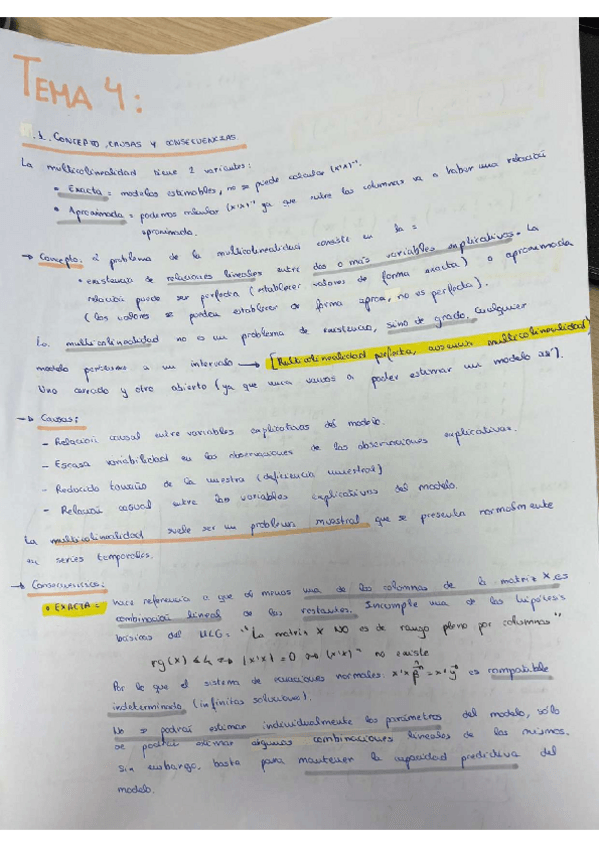 TEMA 4:
.1. CONCEPTO, CAUSAS Y CONSECUENCIAS.
La multicolinealidad tiene 2 variantes:
• Exacta = modelos estimables, no se puede calcular (x'x)⁻¹.
• Aproximada = podemos calcular (x'x)⁻¹ ya que entre las columnas va a haber una relación
aproximada.
→ Concepto: el problema de la multicolinealidad consiste en la =
• existencia de relaciones lineales entre dos o más variables explicativas. La
relación puede ser perfecta (establecer valores de forma exacta) o aproximada
(los valores se pueden establecer de forma aprox, no es perfecta).
La multicolinealidad no es un problema de existencia, sino de grado, cualquier
modelo pertenece a un intervalo → [Multicolinealidad perfecta, ausencia multicolinealidad)
Uno cerrado y otro abierto (ya que nunca vamos a poder estimar un modelo así).
→ Causas:
- Relación causal entre variables explicativas del modelo.
- Escasa variabilidad en las observaciones de las observaciones explicativas.
- Reducido tamaño de la muestra (deficiencia muestral)
- Relación casual entre las variables explicativas del modelo.
La multicolinealidad suele ser un problema muestral que se presenta normalmente
en series temporales.
→ Consecuencias:
• EXACTA = hace referencia a que al menos una de las columnas de la matriz X es
combinación lineal de las restantes. Incumple una de las hipótesis
básicas del MLG: "La matriz X NO es de rango pleno por columnas"
rg(x) < k → |x'x| = 0 → (x'x)⁻¹ no existe
Por lo que el sistema de ecuaciones normales: x'x β̂ = x'y es compatible
indeterminado (infinitas soluciones).
No se podrán estimar individualmente los parámetros del modelo, sólo
se podrán estimar algunas combinaciones lineales de los mismos.
Sin embargo, basta para mantener la capacidad predictiva del
modelo.